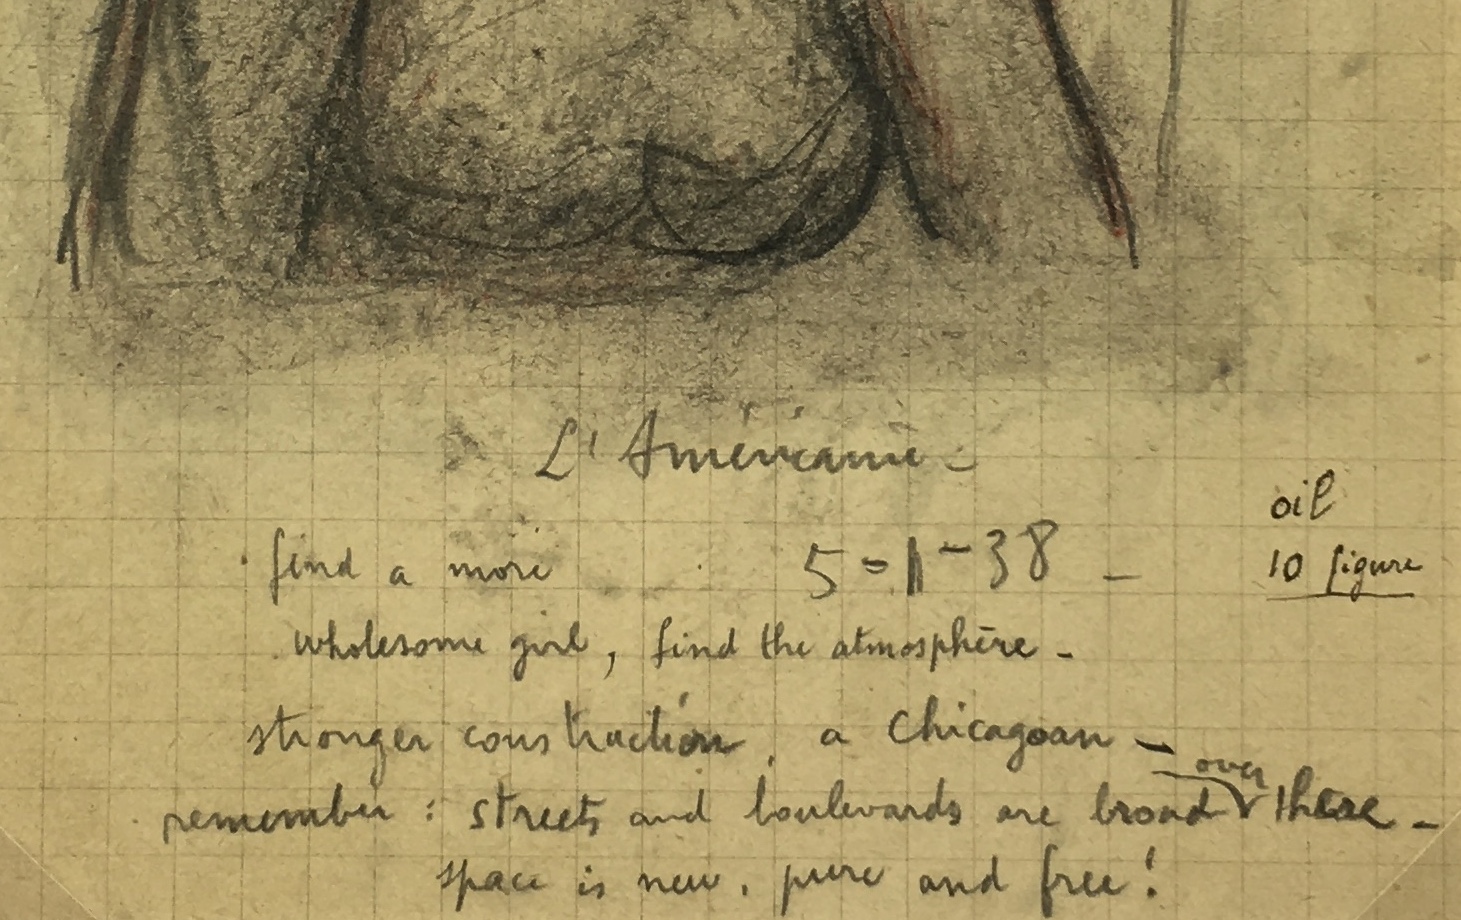 L'Américaine -
find a more
5-1-38 -
oil
10 figure
wholesome girl, find the atmosphère -
stronger construction, a Chicagoan -
over
remember : streets and boulevards are broad there -
space is new, pure and free!